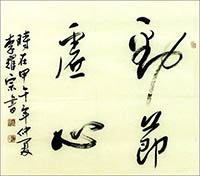 劲節
虚心
時在甲午年仲夏
李羅宗書